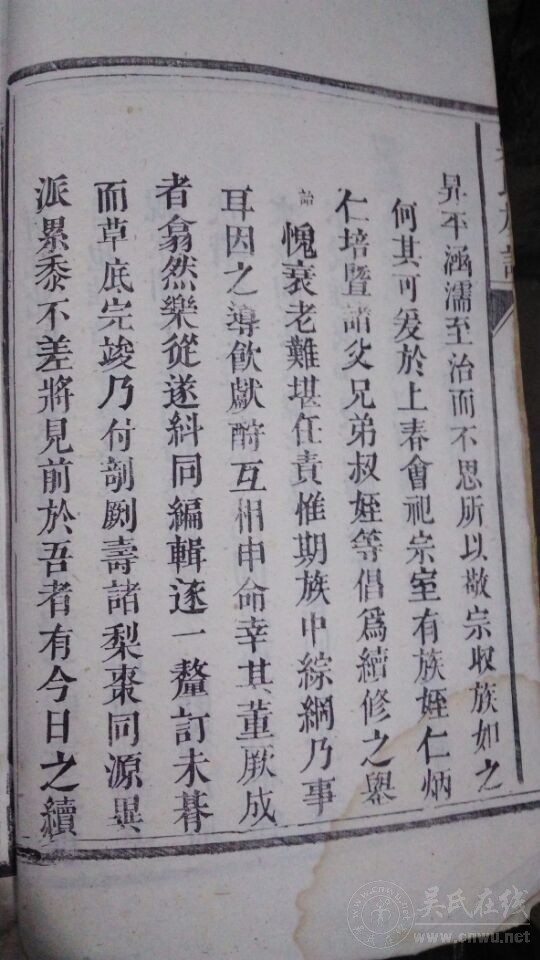 昇平涵濡至治而不思所以敬宗収族如之
何其可爰於上春會祀宗室有族姪仁炳
仁培暨諸父兄弟叔姪等倡爲續修之舉
愧衰老難堪任責惟期族中綜綱乃事
耳因之導飲獻酧互相申命幸其董厥成
者翕然樂從遂糾同編輯逐一釐訂未朞
而草底完竣乃付剞劂壽諸梨棗同源異
派累黍不差將見前於吾者有今日之續
吴氏在线
www.cnwu.net